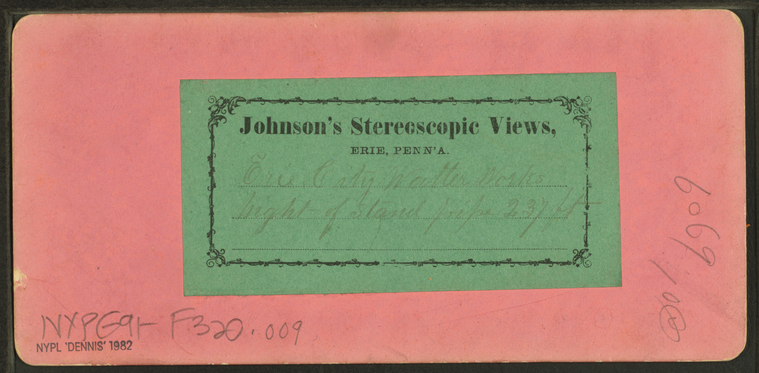 Johnson's Stereoscopic Views,
ERIE, PENN'A.
Erie City Watter Works
hight of stand pipe 237 ft
NYPG91- F320.009
NYPL 'DENNIS' 1982
6069